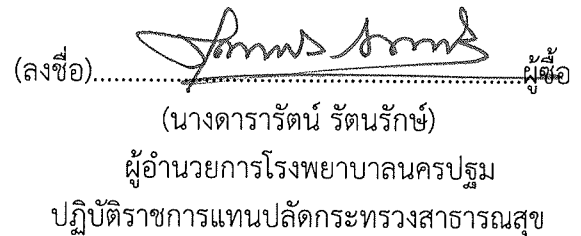 (ลงชื่อ)..........................................................ผู้ซื้อ
(นางดารารัตน์ รัตนรักษ์)
ผู้อำนวยการโรงพยาบาลนครปฐม
ปฏิบัติราชการแทนปลัดกระทรวงสาธารณสุข